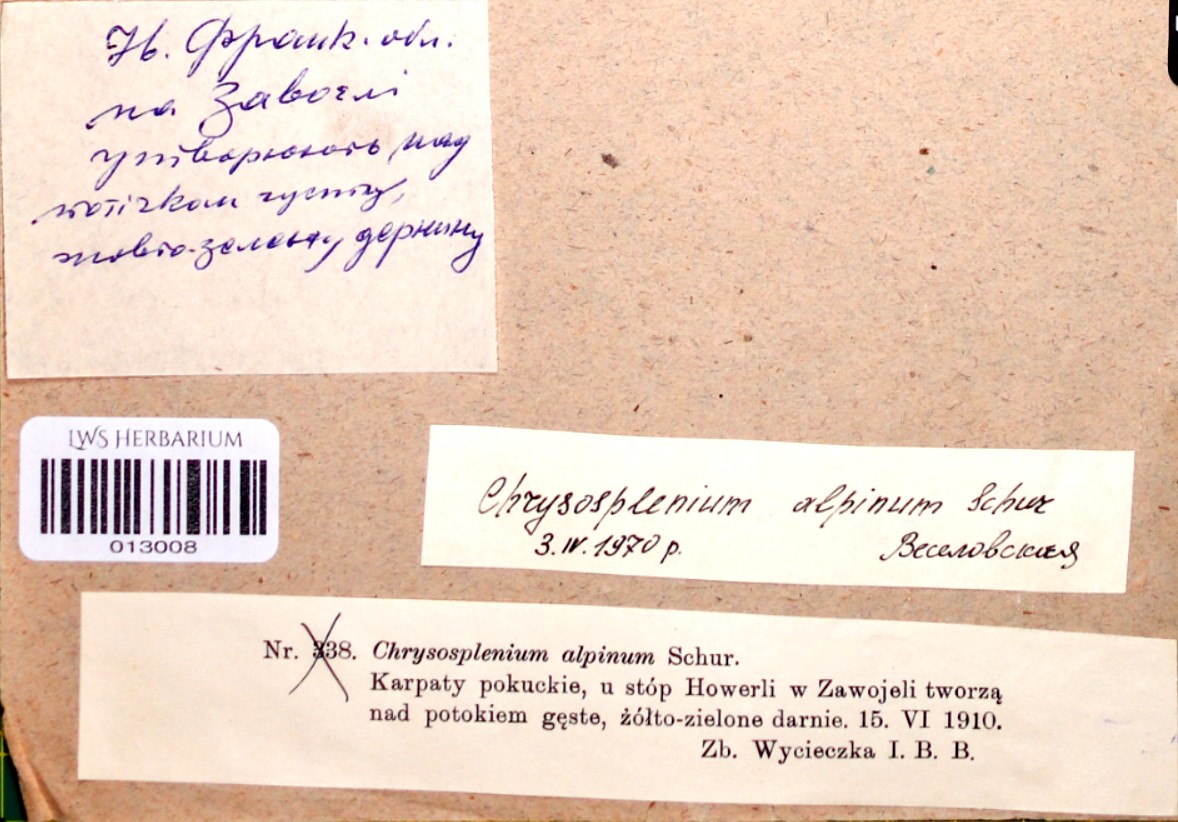 Ів. Франк. обл.
на Завоєлі
утворюють над
потічком густу,
жовто-зелену дернину
LWS HERBARIUM
013008
Chrysosplenium alpinum Schur
3.IV.1970 р. Веселовская
Nr. 338. Chrysosplenium alpinum Schur.
Karpaty pokuckie, u stóp Howerli w Zawojeli tworzą
nad potokiem gęste, żółto-zielone darnie. 15. VI 1910.
Zb. Wycieczka I. B. B.